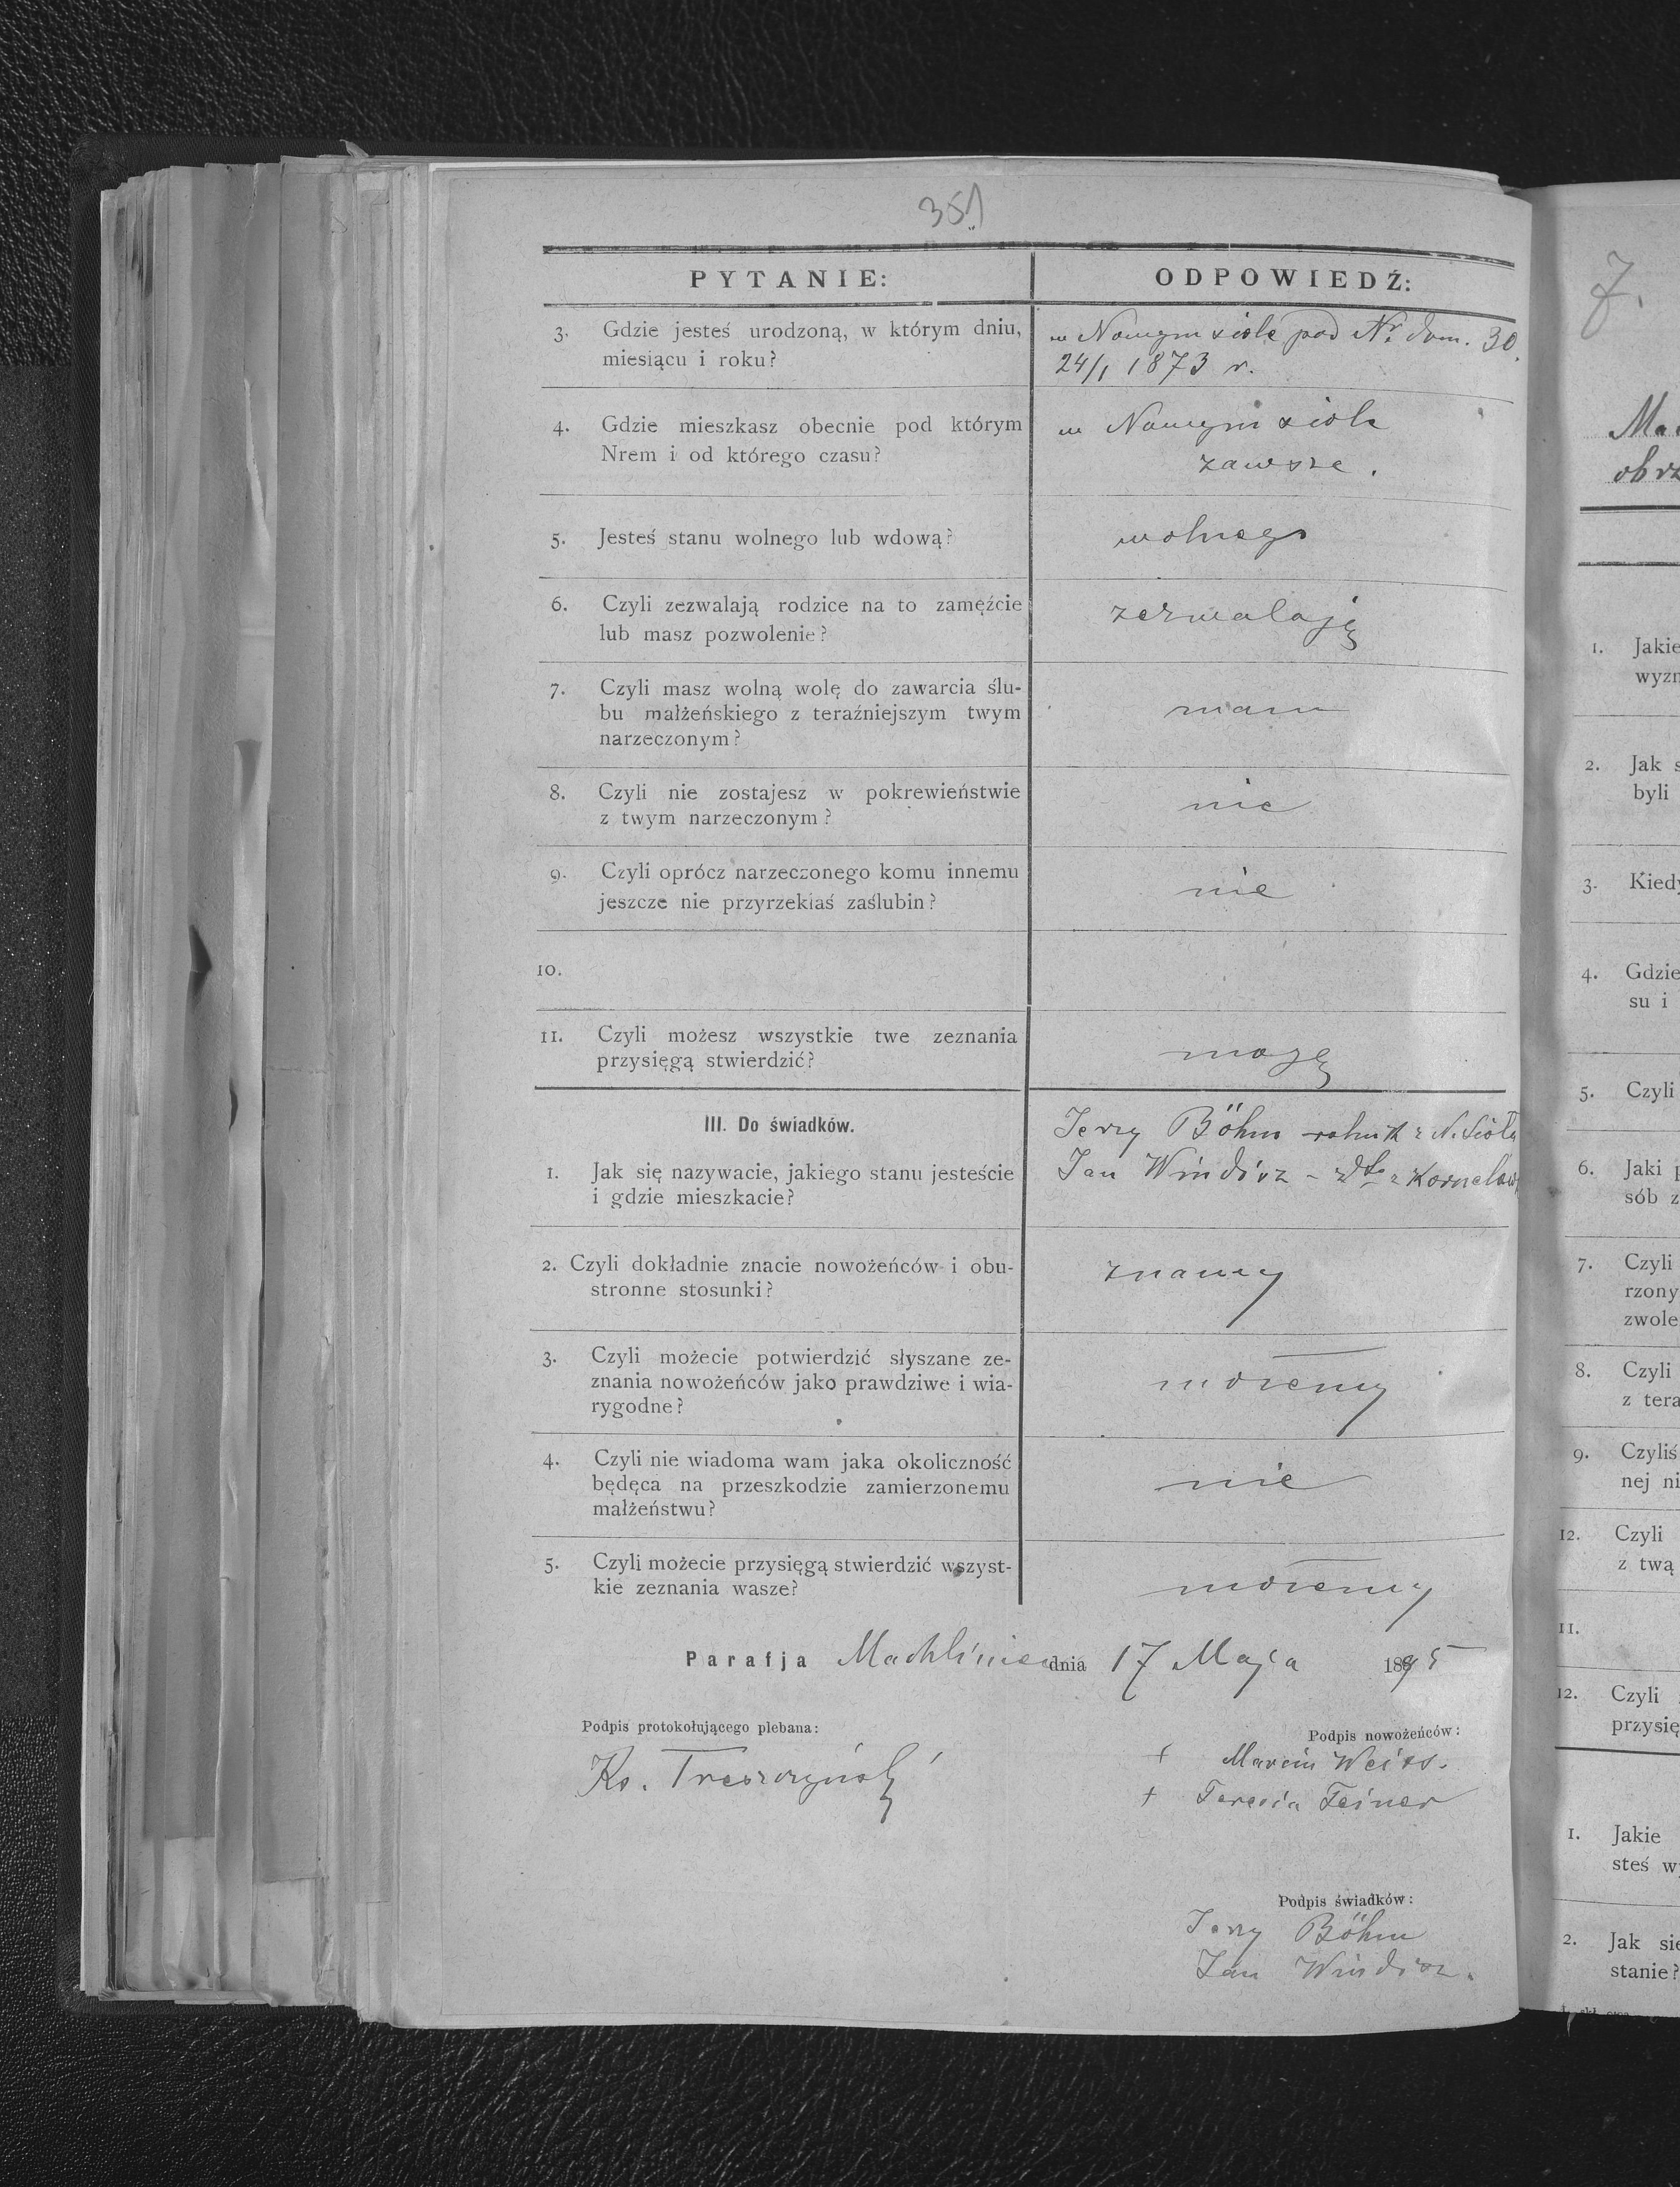 351
PYTANIE:
ODPOWIEDŹ:
3. Gdzie jesteś urodzoną, w którym dniu,
miesiącu i roku?
w Nowym siole pod Nr. dom. 30.
24/1 1873 r.
4. Gdzie mieszkasz obecnie pod którym
Nrem i od którego czasu?
w Nowym siole
zawsze.
5. Jesteś stanu wolnego lub wdową?
wolnego
6. Czyli zezwalają rodzice na to zamęźcie
lub masz pozwolenie?
zezwalają
7. Czyli masz wolną wolę do zawarcia ślu-
bu małżeńskiego z teraźniejszym twym
narzeczonym?
mam
8. Czyli nie zostajesz w pokrewieństwie
z twym narzeczonym?
nie
9. Czyli oprócz narzeczonego komu innemu
jeszcze nie przyrzekłaś zaślubin?
nie
10.
11. Czyli możesz wszystkie twe zeznania
przysięgą stwierdzić?
mogę
III. Do świadków.
1. Jak się nazywacie, jakiego stanu jesteście
i gdzie mieszkacie?
Jerzy Böhm rolnik z N. Sioła
Jan Windisz - dto z
2. Czyli dokładnie znacie nowożeńców i obu-
stronne stosunki?
znamy
3. Czyli możecie potwierdzić słyszane ze-
znania nowożeńców jako prawdziwe i wia-
rygodne?
możemy
4. Czyli nie wiadoma wam jaka okoliczność
będęca na przeszkodzie zamierzonemu
małżeństwu?
nie
5. Czyli możecie przysięgą stwierdzić wszyst-
kie zeznania wasze?
możemy
Parafja Machliniec dnia 17 Maja 1895
Podpis protokołującego plebana:
Ks.
Podpis nowożeńców:
† Marcin Weiss.
† Teresia Feiner
Podpis świadków:
Jerzy Böhm
Jan Windisz.
7.
1. Jakie
wyzn
2. Jak s
byli
3. Kiedy
4. Gdzie
su i
5. Czyli
6. Jaki p
sób z
7. Czyli
rzony
zwole
8. Czyli
z tera
9. Czyliś
nej ni
12. Czyli
z twą
11.
12. Czyli
przysię
1. Jakie
steś w
2. Jak się
stanie?